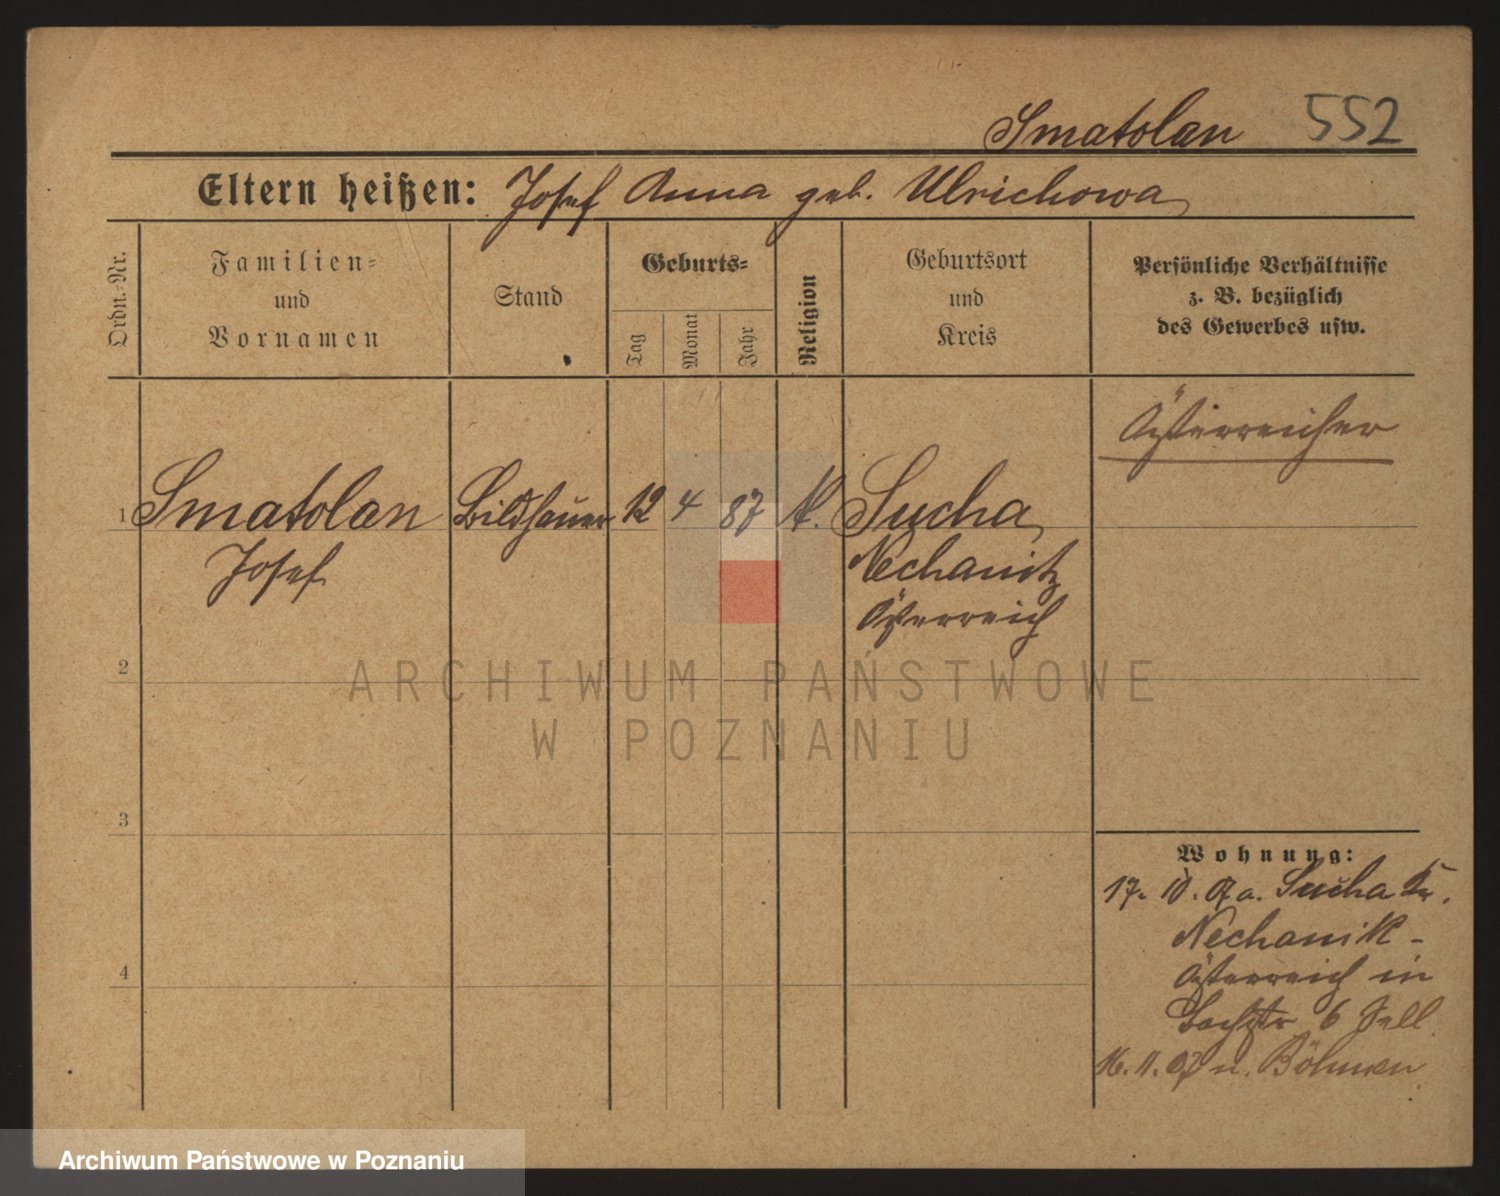 Smatolan 552
Eltern heißen: Josef Anna geb. Ulrichowa
Ordn.-Nr.
Familien-
und
Vornamen
Stand
Geburts-
Tag
Monat
Jahr
Religion
Geburtsort
und
Kreis
Persönliche Verhältnisse
z. B. bezüglich
des Gewerbes usw.
Österreicher
1 Smatolan Bildhauer 12 4 87 k. Sucha
Josef Nechanitz
Österreich
2
3
4
Wohnung:
17. 10. 07 a. Sucha Kr.
Nechanik -
Österreich in
6 Sell
16. 11. 07 n. Böhmen
ARCHIWUM PAŃSTWOWE
W POZNANIU
Archiwum Państwowe w Poznaniu